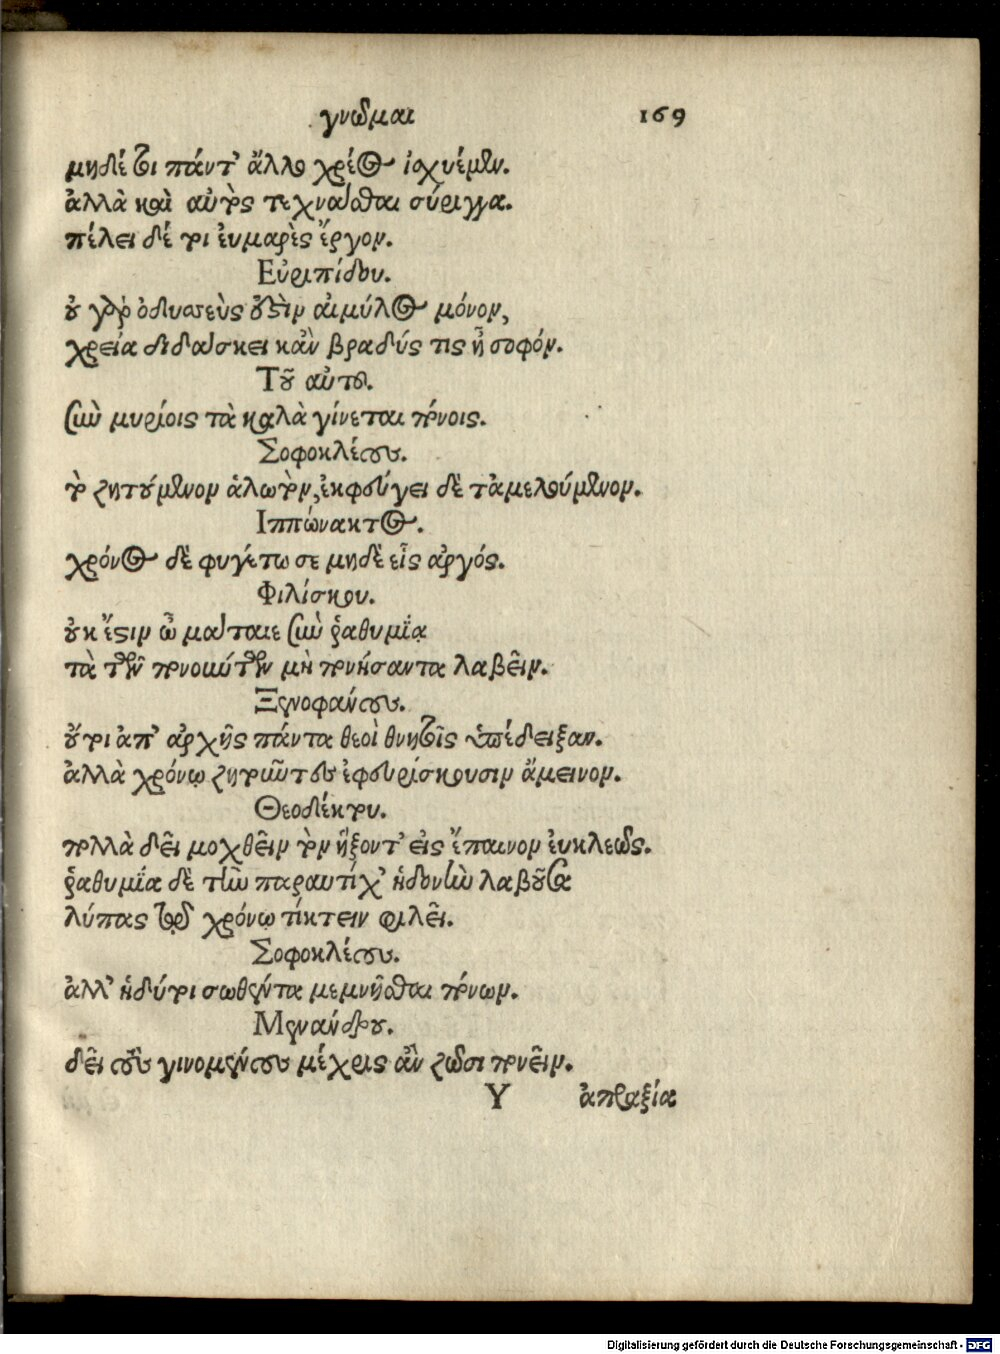 γνῶμαι 169
μηδέ τοι πάντ' ἄλλο χρέος ἰσχυέμεν.
ἀλλὰ καὶ αὐτὸς τεχνᾶσθαι σύριγγα.
πέλει δέ τοι ἐυμαρὲς ἔργον.
Εὐριπίδου.
οὐ γὰρ ὀδυσσεὺς ὅστὶν αἱμύλος μόνον,
χρεία διδάσκει κἂν βραδύς τις ᾖ σοφόν.
Τοῦ αὐτοῦ.
σὺν μυρίοις τὰ καλὰ γίνεται πόνοις.
Σοφοκλέους.
τὸ ζητούμενον ἁλωτὸν, ἐκφεύγει δὲ τἀμελούμενον.
Ιππώνακτος.
χρόνος δὲ φυγέτω σε μηδὲ εἷς ἀργός.
Φιλίσκου.
οὐκ ἔστιν ὦ μάταιε σὺν ῥαθυμίᾳ
τὰ τῶν πονούντων μὴ πονήσαντα λαβεῖν.
Ξενοφάνους.
οὔτοι ἀπ' ἀρχῆς πάντα θεοὶ θνητοῖς ὑπέδειξαν.
ἀλλὰ χρόνῳ ζητοῦντες ἐφευρίσκουσιν ἄμεινον.
Θεοδέκτου.
πολλὰ δεῖ μοχθεῖν τὸν ἥξοντ' εἰς ἔπαινον ἐυκλεῶς.
ῥαθυμία δὲ τὴν παραυτίχ' ἡδονὴν λαβοῦσα
λύπας τῷδε χρόνῳ τίκτειν φιλεῖ.
Σοφοκλέους.
ἀλλ' ἡδύ τοι σωθέντα μεμνῆσθαι πόνων.
Μενάνδρου.
δεῖ τοὺς γινομένους μέχρις ἂν ζῶσι πονεῖν.
Υ ἀπραξία
Digitalisierung gefördert durch die Deutsche Forschungsgemeinschaft - DFG